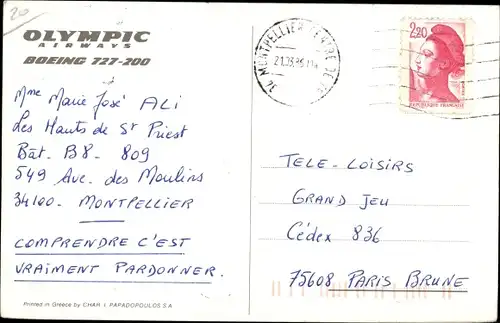 20
OLYMPIC
AIRWAYS
BOEING 727-200
Mme Marie José ALI
Les Hauts de St Priest
Bât. B8 - 809
549 Ave. des Moulins
34100 - MONTPELLIER
COMPRENDRE C'EST
VRAIMENT PARDONNER.
Printed in Greece by CHAR. I. PAPADOPOULOS S.A.
34 MONTPELLIER
2,20
REPUBLIQUE FRANÇAISE
TELE-LOISIRS
GRAND JEU
Cédex 836
75608 PARIS BRUNE